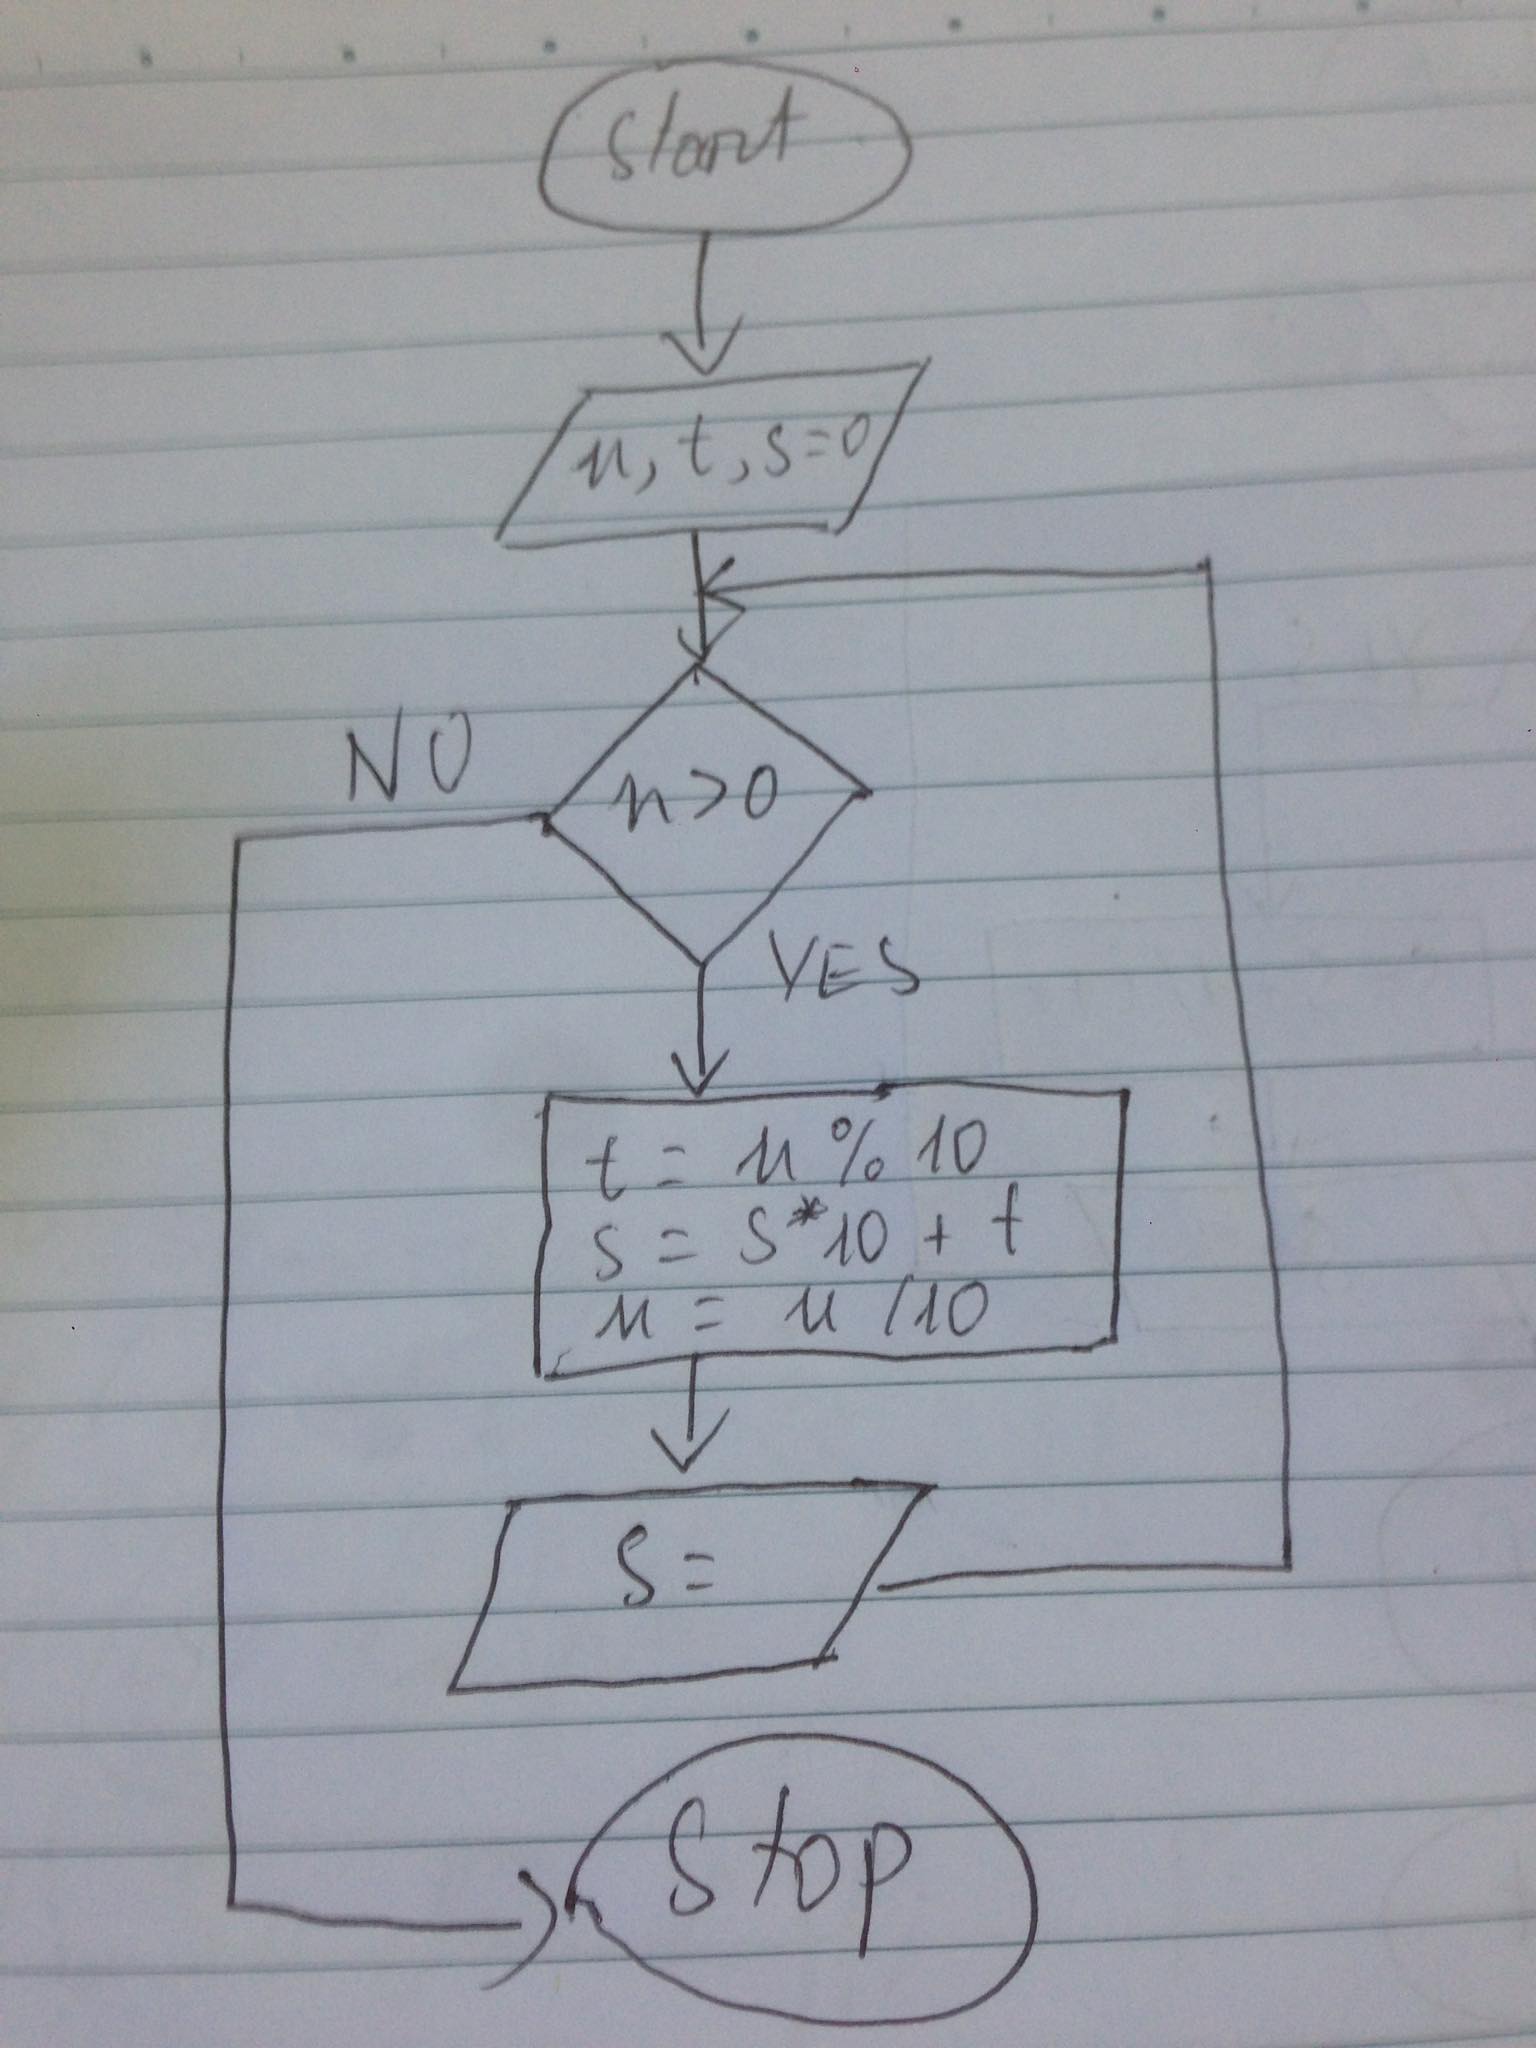 Start
n, t, s=0
n>0
NO
YES
t = n % 10
s = s*10 + t
n = n /10
S=
Stop